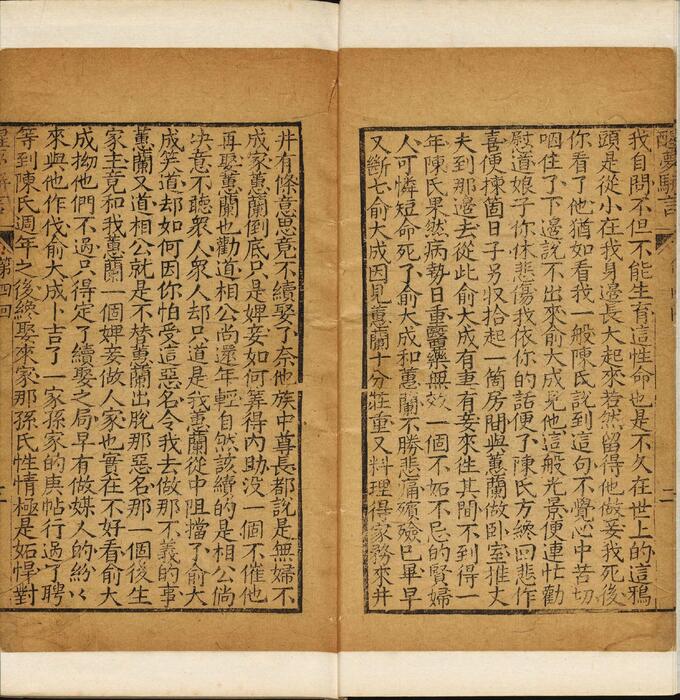 醒夢駢言
我自問不但不能生育這性命也是不久在世上的這鴉
頭是從小在我身邊長大起來若然留得他做妾我死後
你看了他猶如看我一般陳氏說到這句不覺心中苦切
咽住了下邊說不出來俞大成見他這般光景便連忙勸
慰道娘子你休悲傷我依你的話便了陳氏方纔回悲作
喜便揀箇日子另收拾起一箇房間與蕙蘭做臥室推丈
夫到那邊去從此俞大成有妻有妾來徃其間不到得一
年陳氏果然病勢日重醫藥無效一個不妬不忌的賢婦
人可憐短命死了俞大成和蕙蘭不勝悲痛殯殮已畢早
又斷七俞大成因見蕙蘭十分莊重又料理得家務來井
井有條意思竟不續娶了奈他族中尊長都說是無婦不
成家蕙蘭到底只是婢妾如何算得內助沒一個不催他
再娶蕙蘭也勸道相公尚還年輕自然該續的是相公倘
决意不聽衆人衆人却只道是我蕙蘭從中阻擋了俞大
成笑道却如何因你怕受這惡名令我去做那不義的事
蕙蘭又道相公就是不替蕙蘭出脫那惡名那一個後生
家主竟和我蕙蘭一個婢妾做人家也實在不好看俞大
成拗他們不過只得定了續娶之局早有做媒人的紛〻
來與他作伐俞大成卜吉了一家孫家的庚帖行過了聘
等到陳氏週年之後纔娶來家那孫氏性情極是妬悍對
第四回
二